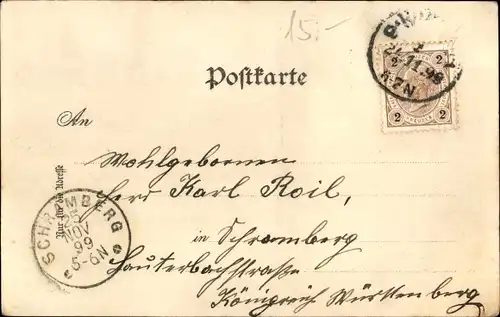 15.-
2
11.98
2
2
Postkarte
An
Wohlgebornen
Herr Karl Roil,
in Schramberg
Lauterbachstraße
Königreich Württenberg
Nur für die Adresse
SCHRAMBERG
25
NOV
99
5-6N